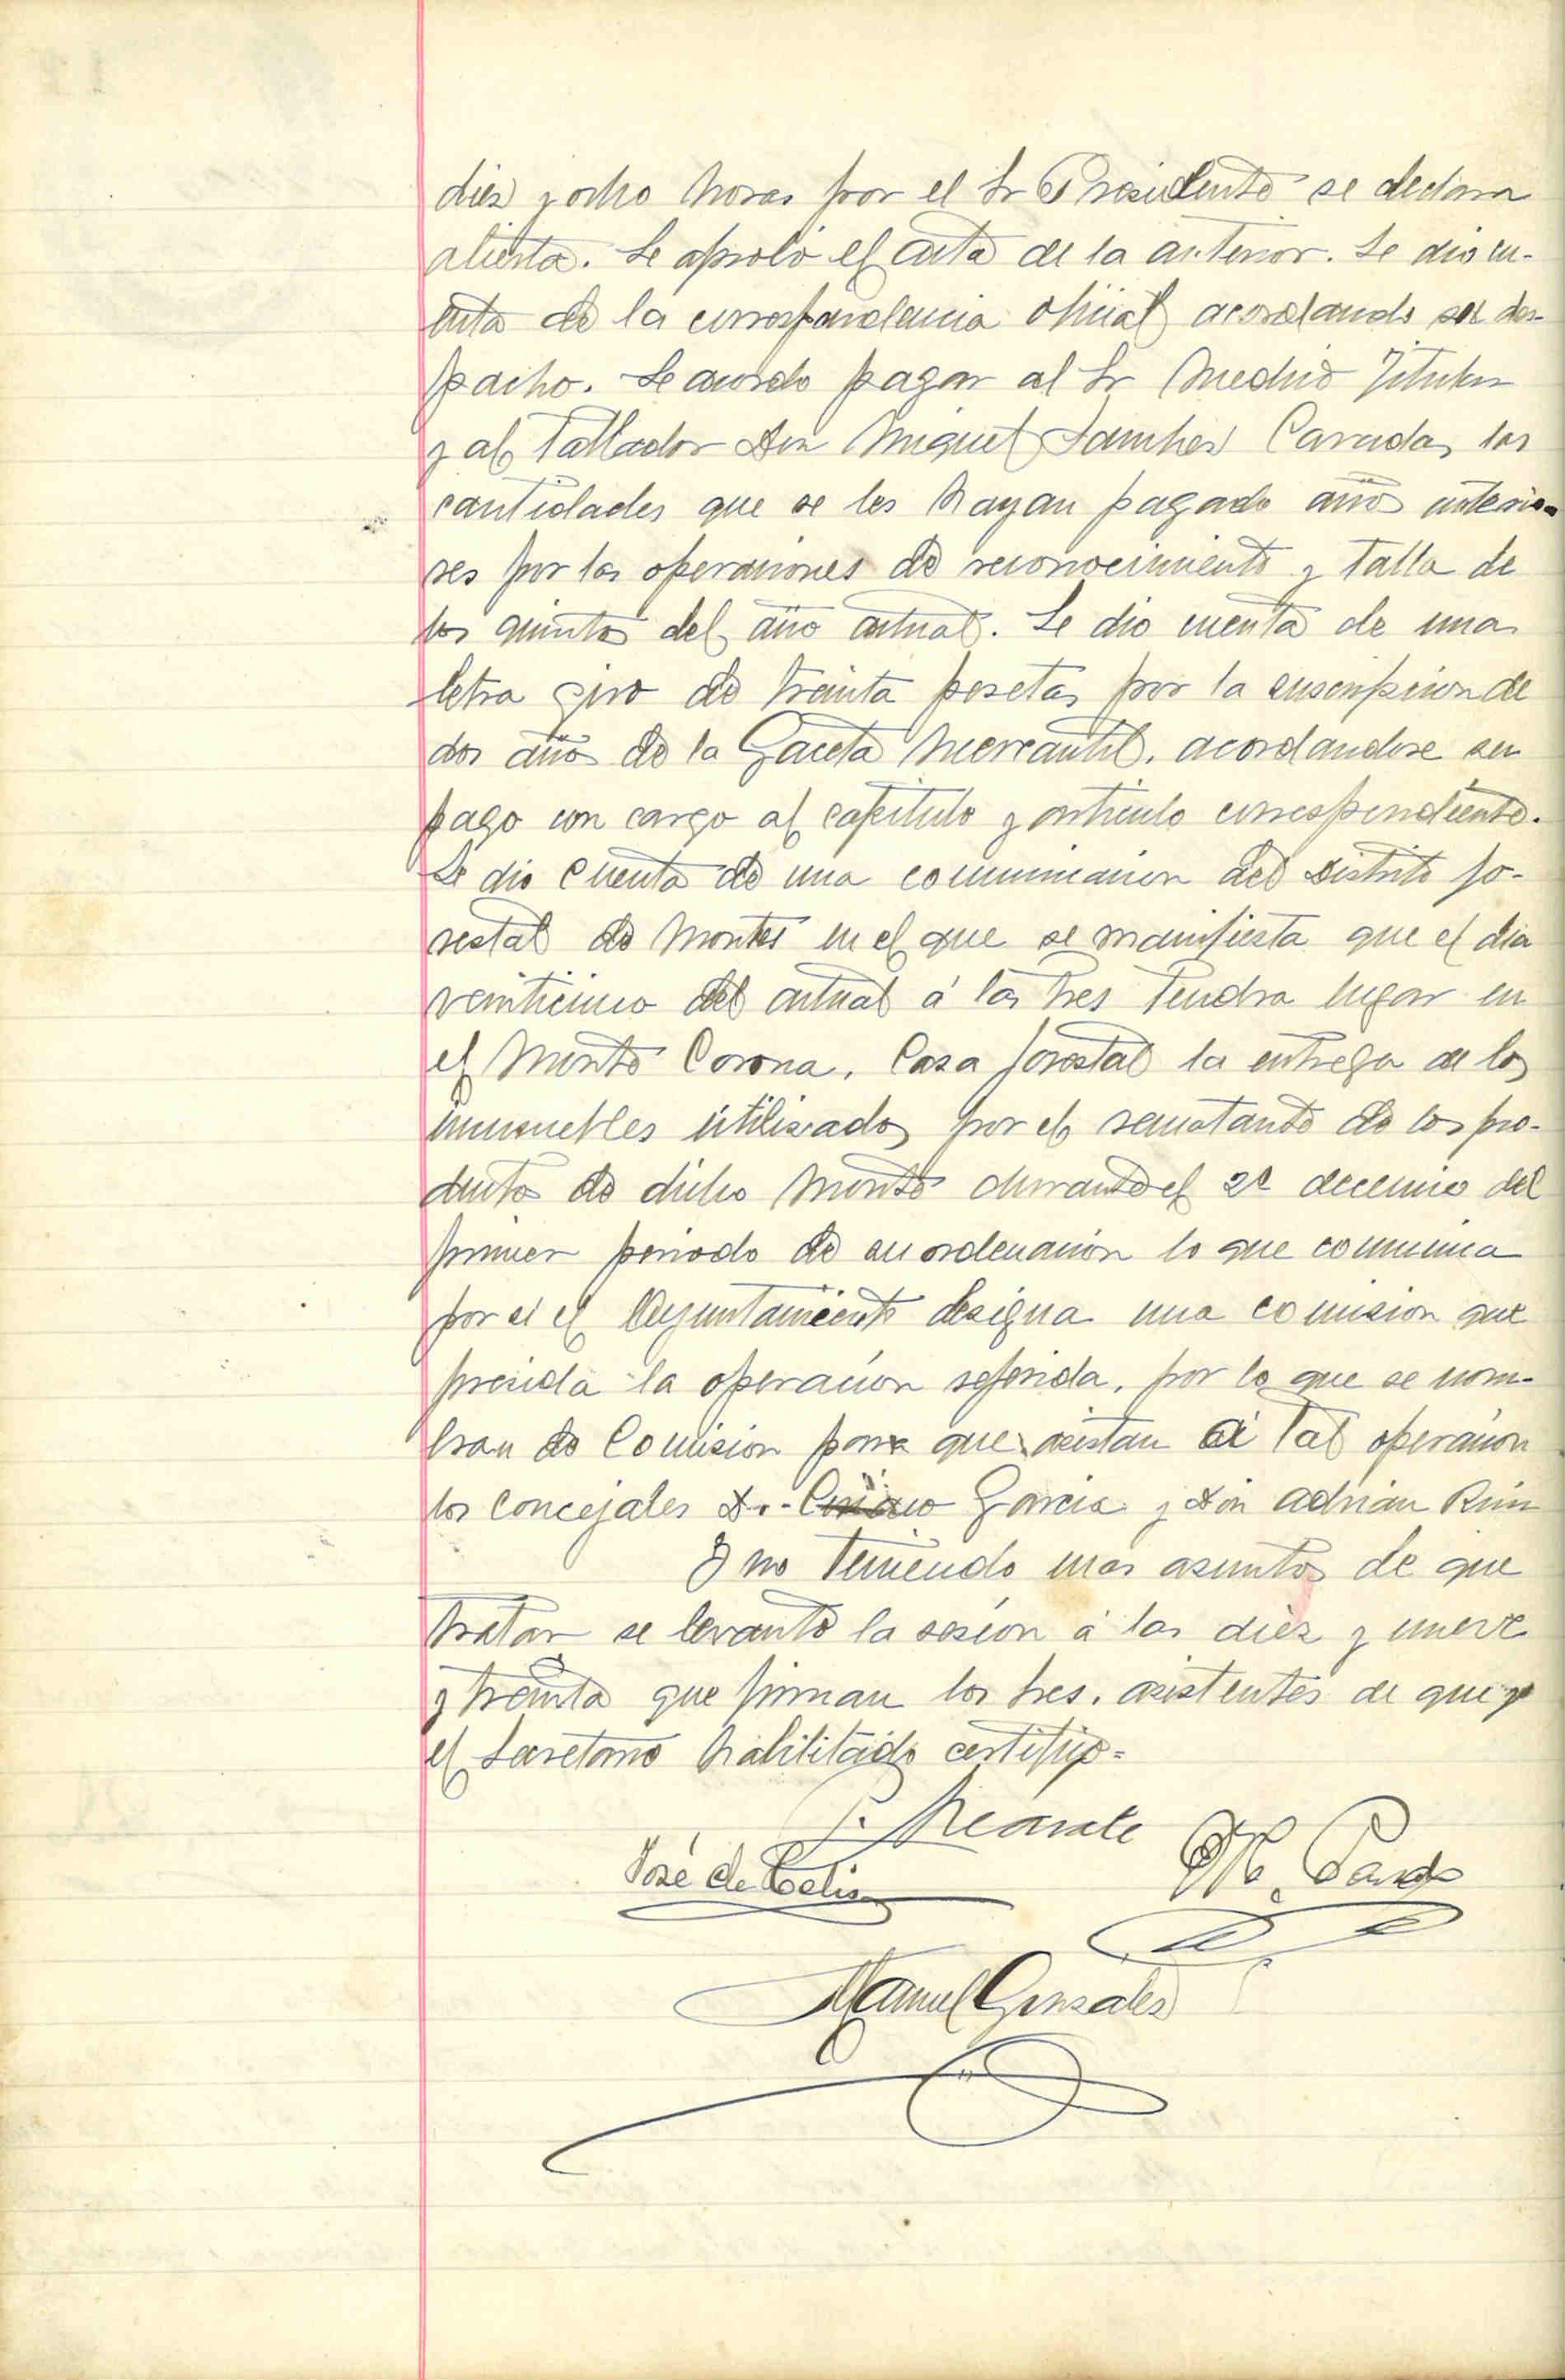 diez y ocho horas por el Sr Presidente se declara
abierta. Se aprobó el acta de la anterior. Se dio cu-
enta de la correspondencia oficial acordando su des-
pacho. Se acordo pagar al Sr Medico Titular
y al Tallador Don Miguel Sanchez las
cantidades que se les hayan pagado años anterio-
res por las operaciones de reconocimiento y talla de
los quintos del año actual. Se dio cuenta de una
letra giro de treinta pesetas por la suscripcion de
dos años de la Gaceta Mercantil, acordandose su
pago con cargo al capitulo y articulo correspondiente.
Se dio cuenta de una comunicacion del Distrito fo-
restal de Montes en el que se manifiesta que el dia
veinticinco del actual á las tres tendra lugar en
el Monte Corona, Casa forestal la entrega de los
inmuebles utilizados por el rematante de los pro-
ductos de dicho Monte durante el 2º decenio del
primer periodo de su ordenación lo que comunica
por si el Ayuntamiento designa una comision que
presida la operación referida, por lo que se nom-
bran de Comision para que asistan á tal operación
los concejales D. Garcia y Don Adrian Ruiz
Y no teniendo mas asuntos de que
tratar se levantó la sesión á las diez y nueve
y treinta que firman los tres. asistentes de que yo
el Secretario habilitado certifico=
José de Celis
Manuel Gonzalez